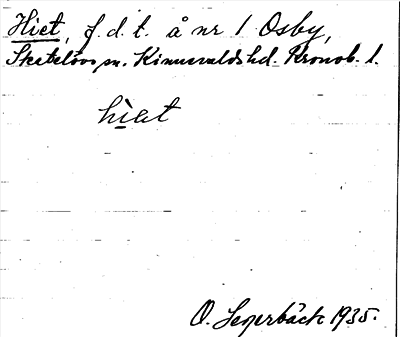 Hiet, f.d.t. å nr 1 Osby,
Skatelövs sn. Kinnevalds hd. Kronob. l.
hìet
O. Segerbäck 1935.